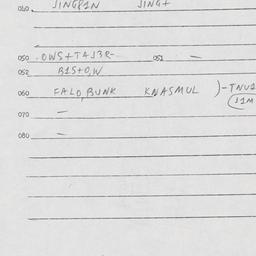 040 JINGPIN JING+
050 .OWS+TAJ3R- 051 —
052 B1S+O,W
060 FALO, BUNK KNASMUL )-TNU1
(J1M
070 —
080 —